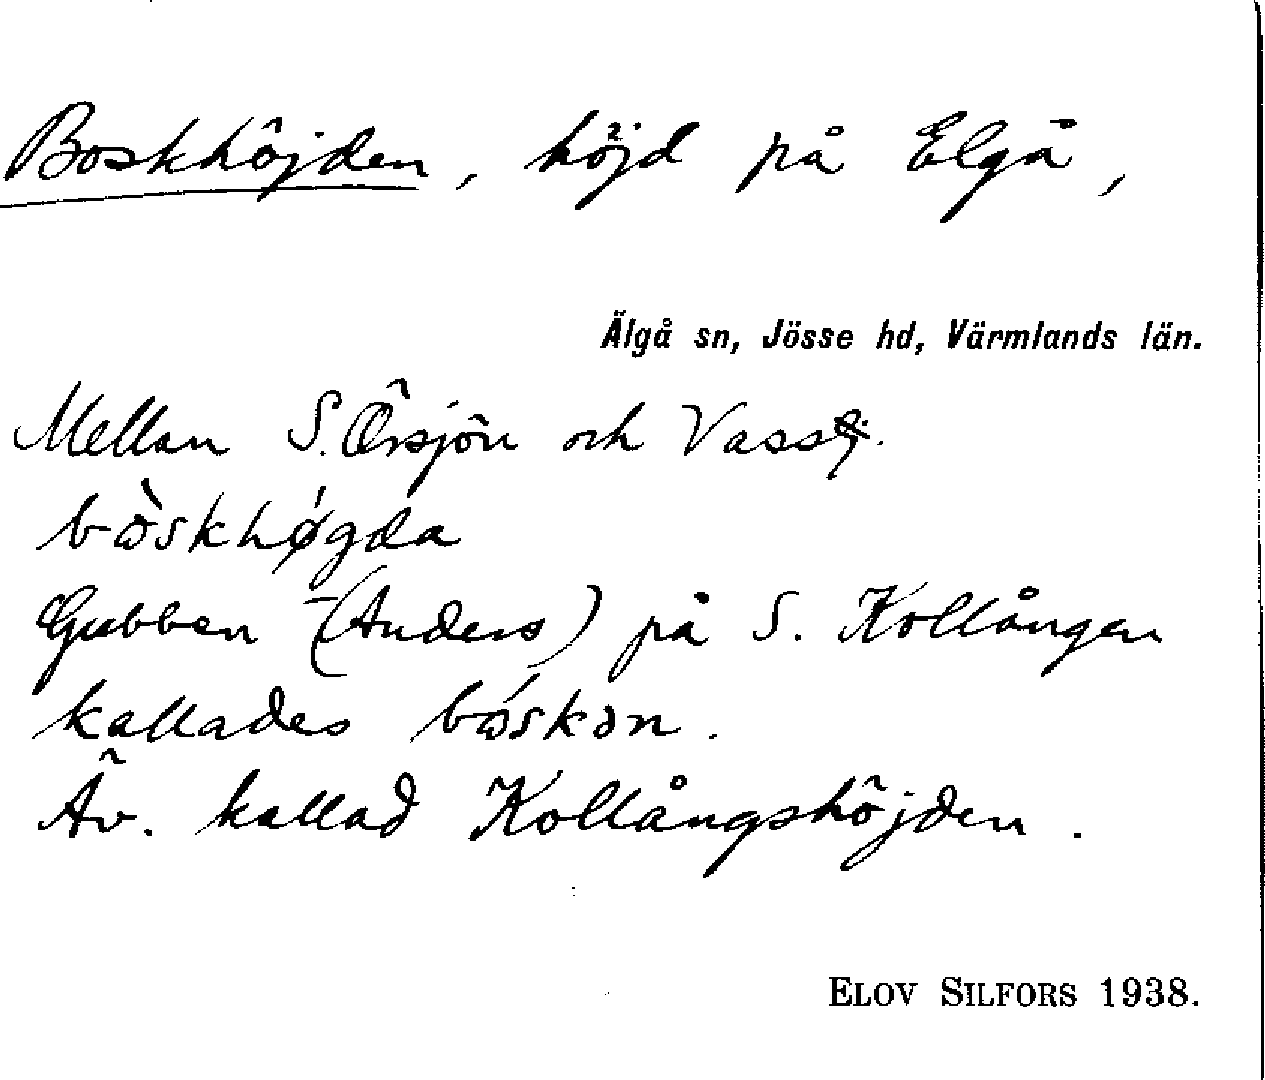 Boskhöjden, höjd på Elgå,
Älgå sn, Jösse hd, Värmlands län.
Mellan S. Örsjön och Vassj.
bòskhǿgda
Gubben (Anders) på S. Kollången
kallades bóskən.
Äv. kallad Kollångshöjden.
ELOV SILFORS 1938.